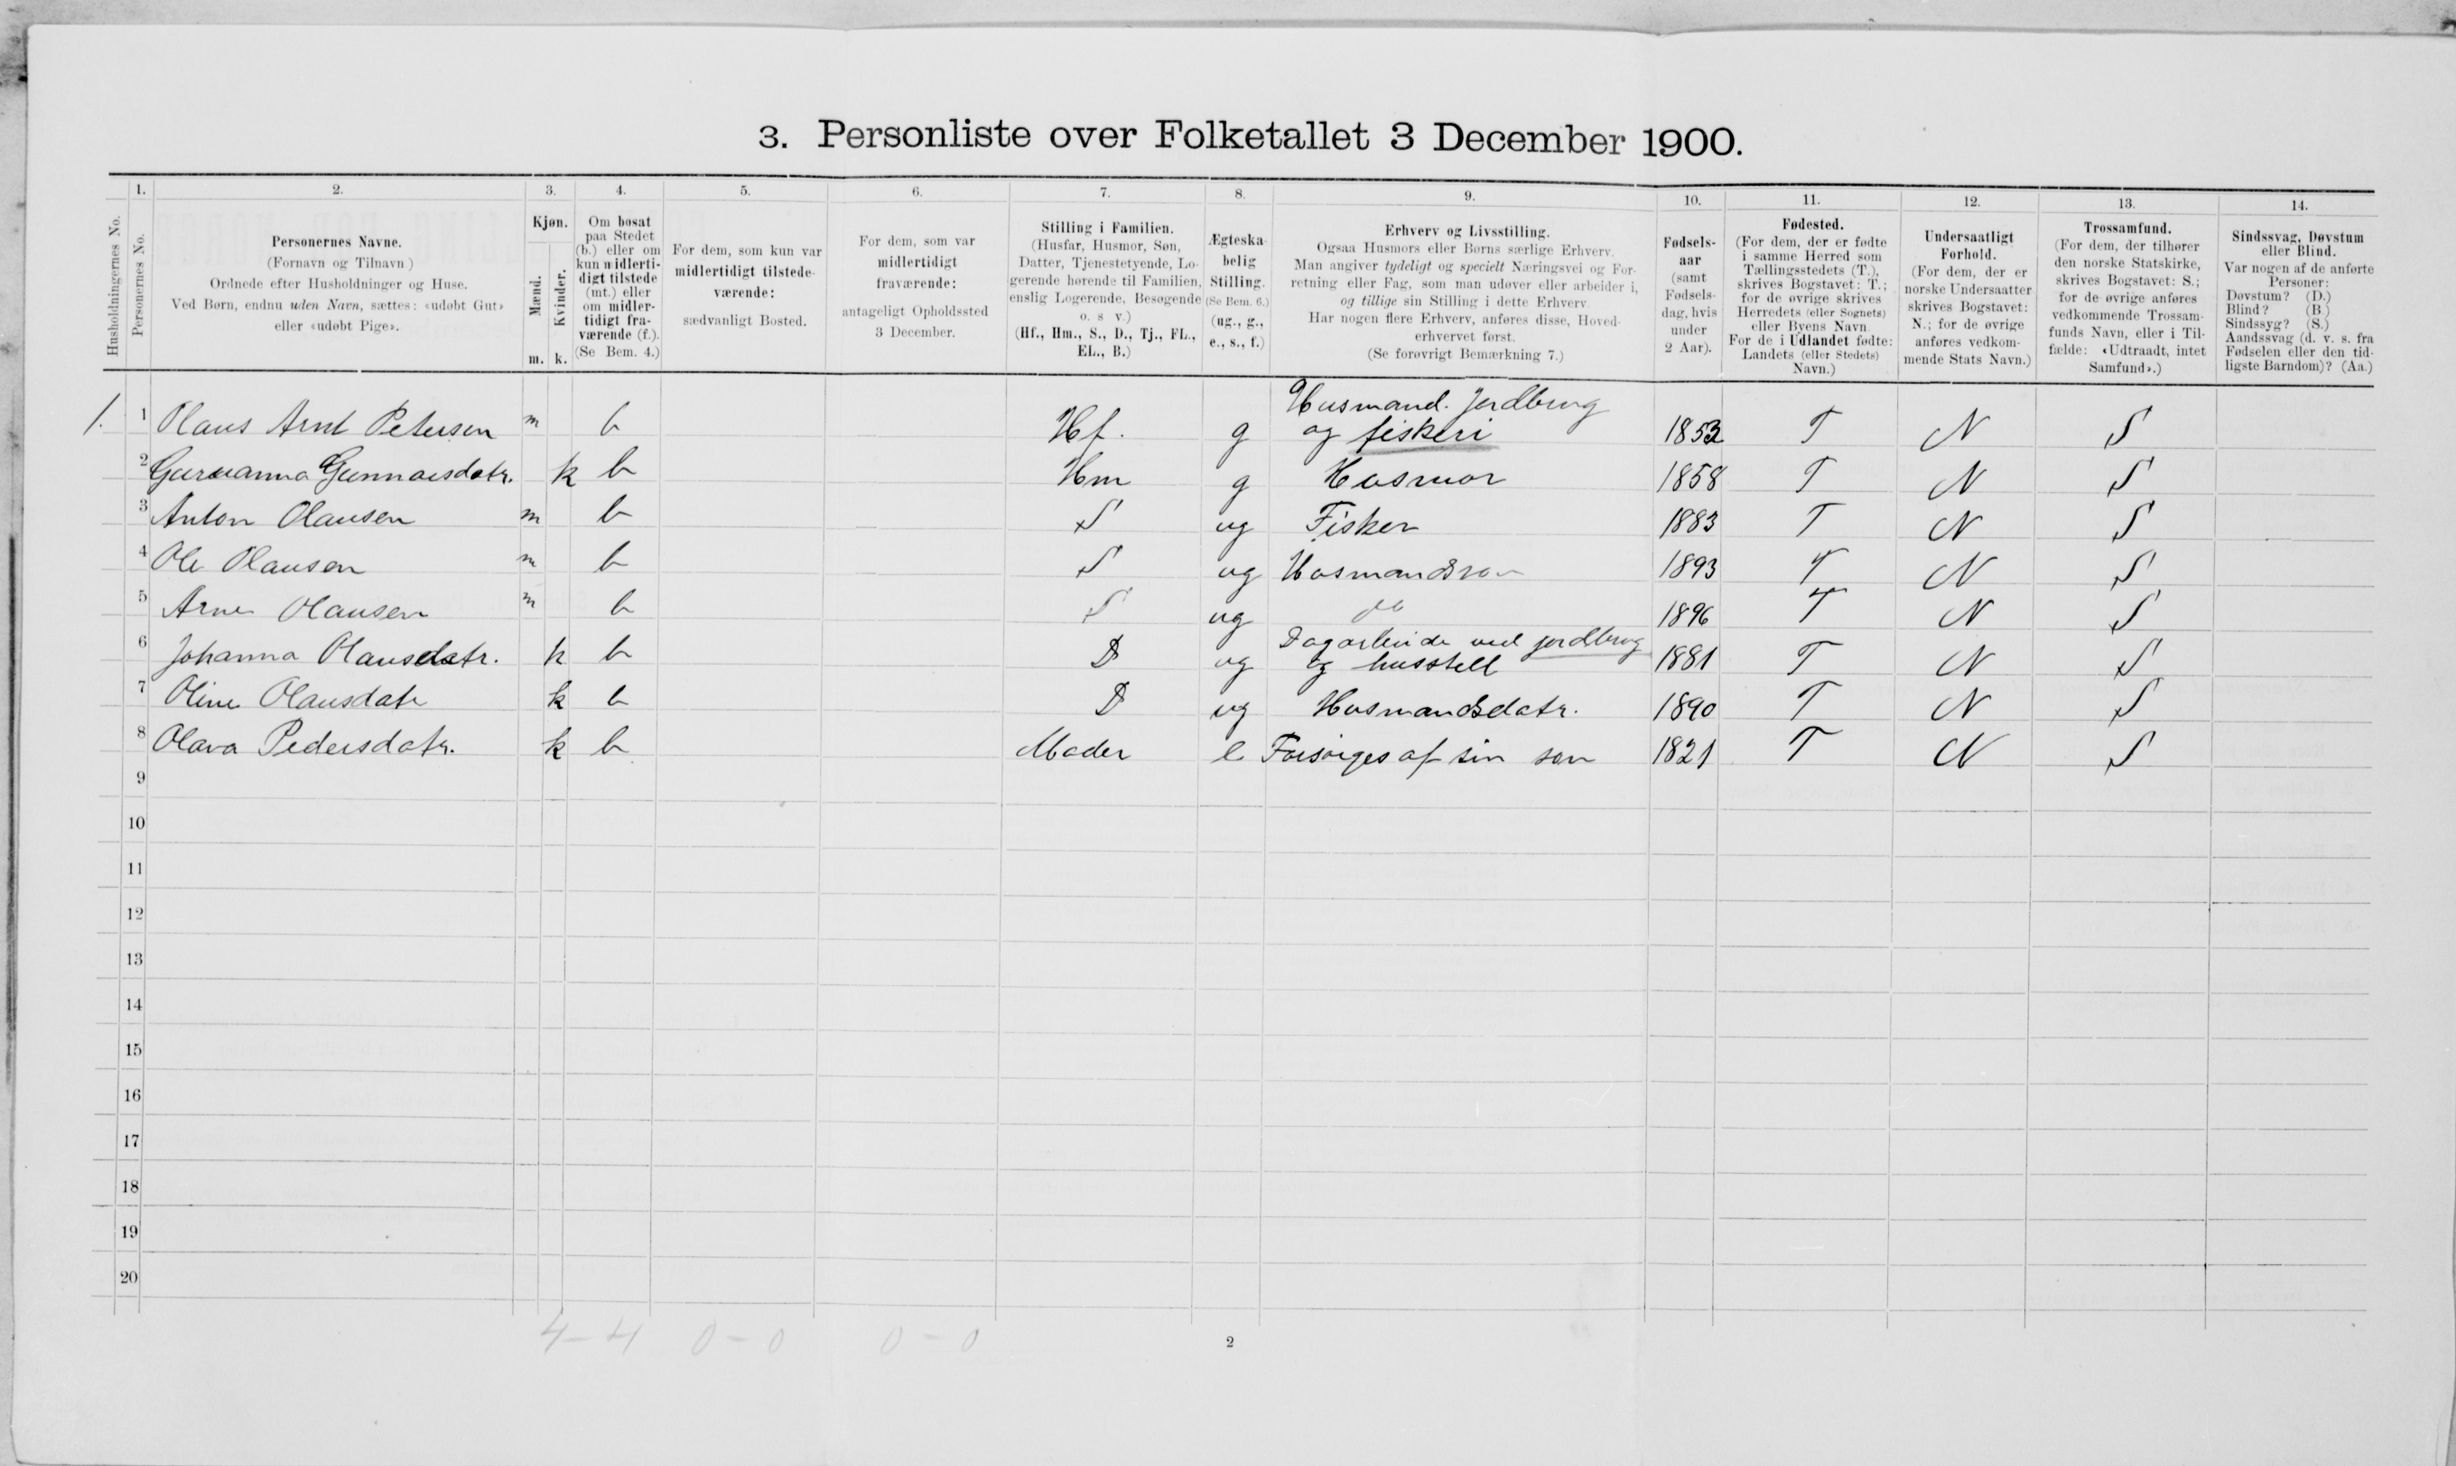 3. Personliste over Folketallet 3 December 1900.
1. 2. 3. 4. 5. 6. 7. 8. 9. 10. 11. 12. 13. 14.
Husholdningernes No.
Personernes No.
Personernes Navne.
(Fornavn og Tilnavn)
Ordnede efter Husholdninger og Huse.
Ved Børn, endnu uden Navn, sættes: «udøbt Gut»
eller «udøbt Pige».
Kjøn.
Mænd.
Kvinder.
m. k.
Om bosat
paa Stedet
(b.) eller om
kun midlerti-
digt tilstede
(mt.) eller
om midler-
tidigt fra-
værende (f.).
(Se Bem. 4.)
For dem, som kun var
midlertidigt tilstede-
værende:
sædvanligt Bosted.
For dem, som var
midlertidigt
fraværende:
antageligt Opholdssted
3 December.
Stilling i Familien.
(Husfar, Husmor, Søn,
Datter, Tjenestetyende, Lo-
gerende hørende til Familien,
enslig Logerende, Besøgende
o. s v.)
(Hf., Hm., S., D., Tj., FL.,
EL., B.)
Ægteska-
belig
Stilling.
(Se Bem. 6.)
(ug., g.,
e., s., f.)
Erhverv og Livsstilling.
Ogsaa Husmors eller Børns særlige Erhverv.
Man angiver tydeligt og specielt Næringsvei og For-
retning eller Fag, som man udøver eller arbeider i,
og tillige sin Stilling i dette Erhverv.
Har nogen flere Erhverv, anføres disse, Hoved-
erhvervet først.
(Se forøvrigt Bemærkning 7.)
Fødsels-
aar
(samt
Fødsels-
dag, hvis
under
2 Aar).
Fødested.
(For dem, der er fødte
i samme Herred som
Tællingsstedets (T.),
skrives Bogstavet: T.;
for de øvrige skrives
Herredets (eller Sognets)
eller Byens Navn
For de i Udlandet fødte:
Landets (eller Stedets)
Navn.)
Undersaatligt
Forhold.
(For dem, der er
norske Undersaatter
skrives Bogstavet:
N.; for de øvrige
anføres vedkom-
mende Stats Navn.)
Trossamfund.
(For dem, der tilhører
den norske Statskirke,
skrives Bogstavet: S.;
for de øvrige anføres
vedkommende Trossam-
funds Navn, eller i Til-
fælde: «Udtraadt, intet
Samfund».)
Sindssvag, Døvstum
eller Blind.
Var nogen af de anførte
Personer:
Døvstum? (D.)
Blind? (B)
Sindssyg? (S.)
Aandssvag (d. v. s. fra
Fødselen eller den tid-
ligste Barndom)? (Aa.)
Husmand. Jordbrug
1. 1 Olaus Arnt Petersen m b Hf. g og fiskeri 1853 T N S
2 Gunnarsdatr. k b Hm g Husmor 1858 T N S
3 Anton Olausen m b S ug Fisker 1883 T N S
4 Ole Olausen m b S ug Husmandsson 1893 T N S
5 Arne Olausen m b S ug do 1896 T N S
Dagarbeide ved jordbrug
6 Johanna Olausdatr. k b D ug og husstell 1881 T N S
7 Oline Olausdatr k b D ug Husmandsdatr. 1890 T N S
8 Olava Pedersdatr. k b Moder e Forsørges af sin søn 1821 T N S
9
10
11
12
13
14
15
16
17
18
19
20
4 - 4 0 - 0 0 - 0
2